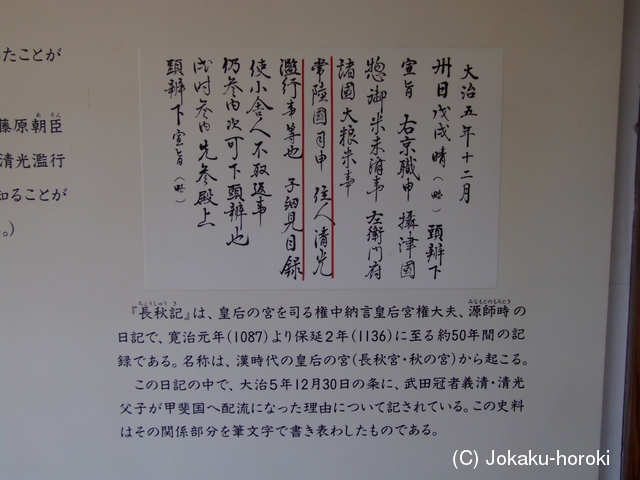 たことが
藤原朝臣
清光濫行
知ることが
。)
大治五年十二月
卅日戊戌晴（略）頭辨下
宣旨 右京職申 攝津國
惣御米未済事 左衛門府
諸國大粮米事
常陸國司申 住人清光
濫行事等也 子細見目録
使小舎人不取返事
仍参内次可下頭辨也
戌时参内先参殿上
頭辨下宣旨（略）
『長秋記』は、皇后の宮を司る権中納言皇后宮権大夫、源師時の
日記で、寛治元年(1087)より保延2年(1136)に至る約50年間の記
録である。名称は、漢時代の皇后の宮(長秋宮・秋の宮)から起こる。
この日記の中で、大治5年12月30日の条に、武田冠者義清・清光
父子が甲斐国へ配流になった理由について記されている。この史料
はその関係部分を筆文字で書き表わしたものである。
(C) Jokaku-horoki